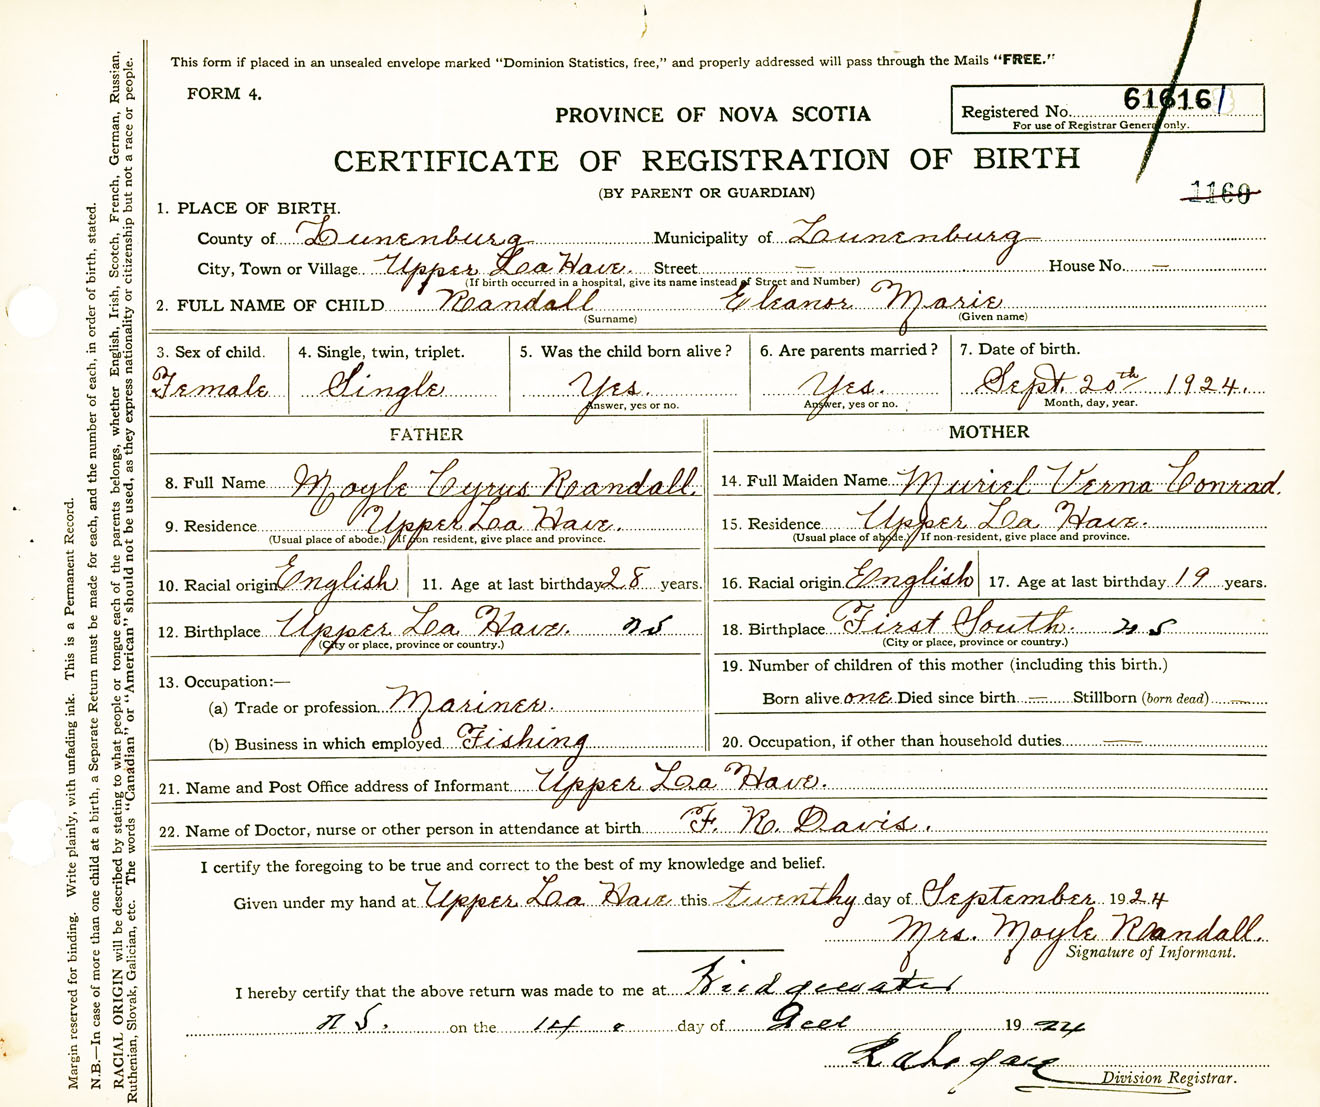 This form if placed in an unsealed envelope marked "Dominion Statistics, free," and properly addressed will pass through the Mails "FREE."
FORM 4.
PROVINCE OF NOVA SCOTIA
Registered No. 61616
For use of Registrar General only.
CERTIFICATE OF REGISTRATION OF BIRTH
(BY PARENT OR GUARDIAN)
1160
1. PLACE OF BIRTH.
County of Lunenburg Municipality of Lunenburg
City, Town or Village Upper La Have. Street — House No. —
(If birth occurred in a hospital, give its name instead of Street and Number)
2. FULL NAME OF CHILD Randall Eleanor Marie
(Surname) (Given name)
3. Sex of child. 4. Single, twin, triplet. 5. Was the child born alive? 6. Are parents married? 7. Date of birth.
Female Single Yes. Yes. Sept. 20th 1924.
Answer, yes or no. Answer, yes or no. Month, day, year.
FATHER MOTHER
8. Full Name Moyle Cyrus Randall. 14. Full Maiden Name Muriel Verna Conrad.
9. Residence Upper La Have. 15. Residence Upper La Have.
(Usual place of abode.) If non resident, give place and province. (Usual place of abode.) If non-resident, give place and province.
10. Racial origin English 11. Age at last birthday 28 years. 16. Racial origin English 17. Age at last birthday 19 years.
12. Birthplace Upper La Have. NS 18. Birthplace First South. NS
(City or place, province or country.) (City or place, province or country.)
13. Occupation:— 19. Number of children of this mother (including this birth.)
(a) Trade or profession Mariner. Born alive one Died since birth — Stillborn (born dead) —
(b) Business in which employed Fishing 20. Occupation, if other than household duties —
21. Name and Post Office address of Informant Upper La Have.
22. Name of Doctor, nurse or other person in attendance at birth F. R. Davis.
I certify the foregoing to be true and correct to the best of my knowledge and belief.
Given under my hand at Upper La Have this twenthy day of September 1924
Mrs. Moyle Randall.
Signature of Informant.
I hereby certify that the above return was made to me at Bridgewater
N S. on the 14. day of 1924
Division Registrar.
Margin reserved for binding. Write plainly, with unfading ink. This is a Permanent Record.
N.B.—In case of more than one child at a birth, a Separate Return must be made for each, and the number of each, in order of birth, stated.
RACIAL ORIGIN will be described by stating to what people or tongue each of the parents belongs, whether English, Irish, Scotch, French, German, Russian,
Ruthenian, Slovak, Galician, etc. The words "Canadian" or "American" should not be used, as they express nationality or citizenship but not a race or people.